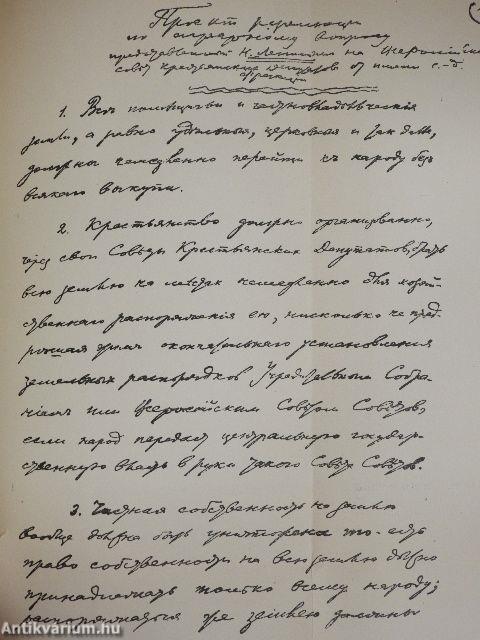 Проект резолюции
по аграрному вопросу
представленный Н. Лениным на Всероссийский
совет крестьянских депутатов от имени с.-д.
фракции
1. Все помещичьи и частновладельческие
земли, а равно удельные, церковные и так далее,
должны немедленно перейти къ народу без
всякого выкупа.
2. Крестьянство должно организованно,
через свои Советы Крестьянских Депутатов, брать
всю землю на местах немедленно для хозяй-
ственнаго распоряжения ею, нисколько не пред-
решая этим окончательнаго установления
земельных распорядков Учредительным Собра-
нием или Всероссийским Советом Советов,
если народ передаст центральную государ-
ственную власть в руки такого Совета Советов.
3. Частная собственность на землю
вообще должна быть уничтожена то-есть
право собственности на всю землю должно
принадлежать только всему народу;
распоряжаться же землею должны
Antikvarium.hu